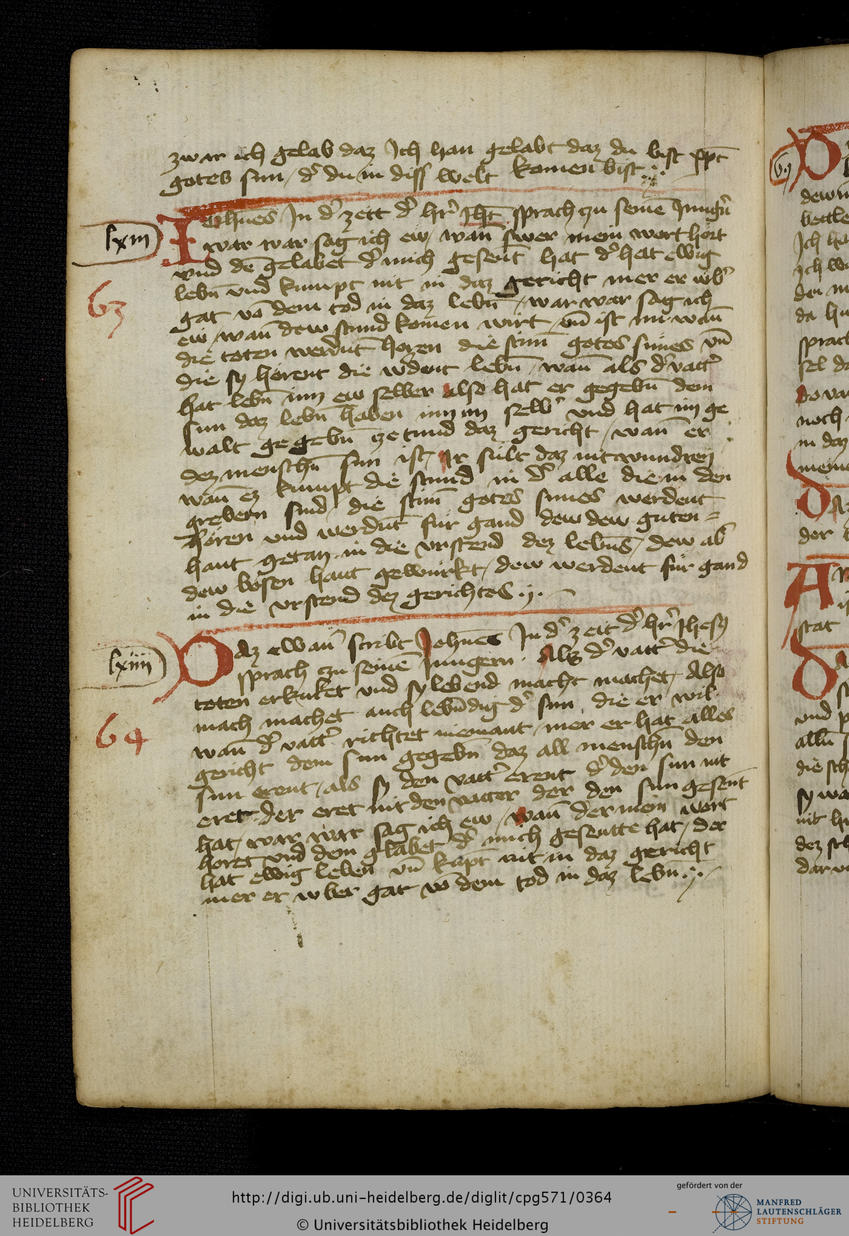 zwar ich gelab daz Ich han gelabt daz du bist xp̄c
gotes sun / d' du in diss welt komen bist
lxiii
63
Iohnes In d' zeit d' hr̄ Jhc̄ sprach zu seinē Jungn̄
war war sag ich ew / wan̄ swer mein wort hört
vnd dē gelabet d' mich gesent hat d' hat ewig
lebn̄ vnd kumpt nit in daz gericht mer er vb'
gat vō dem tod in daz lebn̄ / war war sag ich
ew / wan̄ dew stund komen wirt vn̄ ist nu wan̄
die toten werdnt hören die stim̄ gotes sunes vn̄
die sy hörent die wdent lebn̄ / wan̄ als d' vatt'
hat lebn̄ inn ew selber also hat er gegebn̄ dem
sun daz lebn̄ haben inn im selb' vnd hat im ge
walt gegebn̄ ze tund daz gericht / wan̄ er
dez menschn̄ sun ist Ir sült daz nit wundren
wan̄ ez kumpt die stund in d' alle die in den
grebern sind die stim̄ gotes sunes werdent
hören vnd werdnt für gand dew dew guten =
hant getan in die vrstend dez lebns / dew ab'
dew bösen hant gewürkt / dew werdent für gand
in die vrstend dez gerichtes
lxiiii
64
Daz ewan̄ scribt Johnes In d' zeit d' hr̄ Jhesꝫ
sprach zu seinē Jungern Alz d' vatt' die
toten erkuket vnd sy lebend macht machet / Also
mach machet auch lebn̄dig d' sun die er wil
wan̄ d' vatt' richtet niemant / mer er hat alles
gericht dem sun gegebn̄ daz all menschn̄ den
sun erent / als sy den vatt' erent d' den sun nit
eret der eret nit den vatter der den sun gesent
hat / war war sag ich ew / wan̄ der mein wort
höret vnd dem glabet d' mich gesentte hat / der
hat ewig leben vn̄ kupt nit in daz gericht
mer er vber gat vō dem tod in daz lebn̄
UNIVERSITÄTS-
BIBLIOTHEK
HEIDELBERG
http://digi.ub.uni-heidelberg.de/diglit/cpg571/0364
© Universitätsbibliothek Heidelberg
gefördert von der
MANFRED
LAUTENSCHLÄGER
STIFTUNG